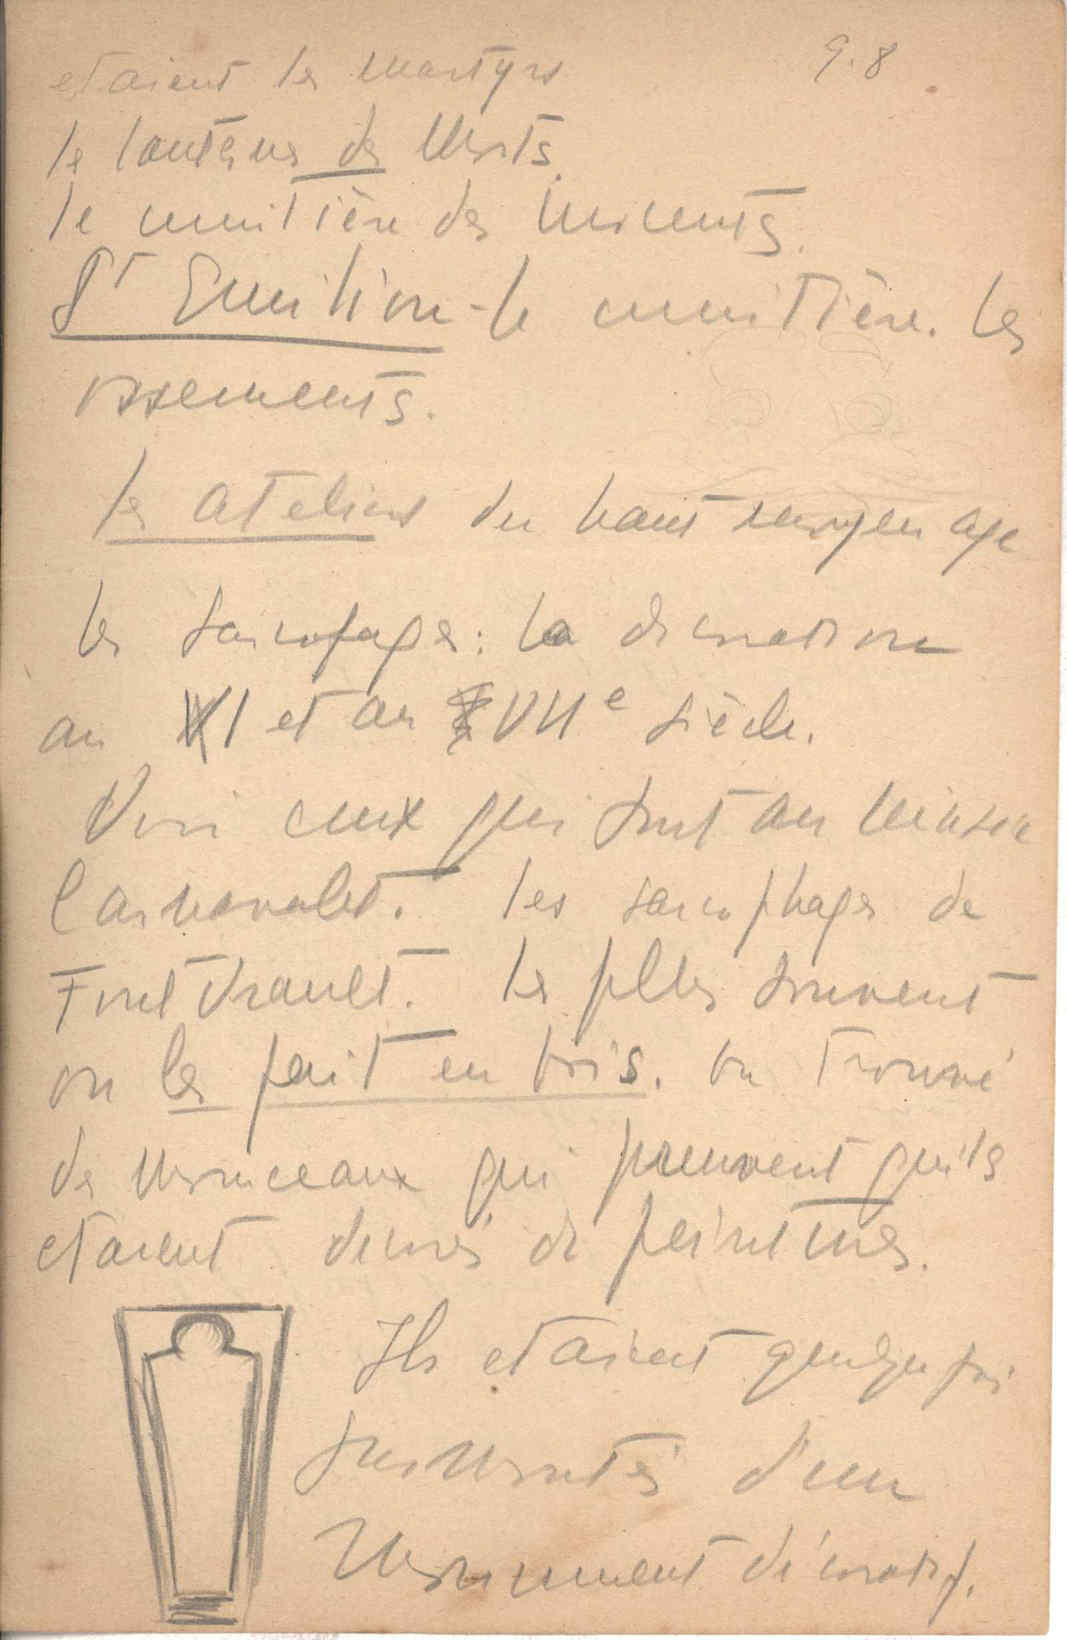 9.8
etaient les martyrs
la lanterne des Morts.
le cimitière des Innocents.
St Emilion - le cimitière. les
ossements.
les ateliers du haut moyen age
les sarcofages: la décoration
au XI et au VIIe siècle.
Voir ceux qui sont au Musée
Carnavalet. les sarcophages de
Fontvrault. les plus souvent
on les fait en bois. on trouvé
des morceaux qui prouvent qu'ils
etaient décorés de peintures.
Ils etaient quelquefois
surmontés d'un
Monument décoratif.